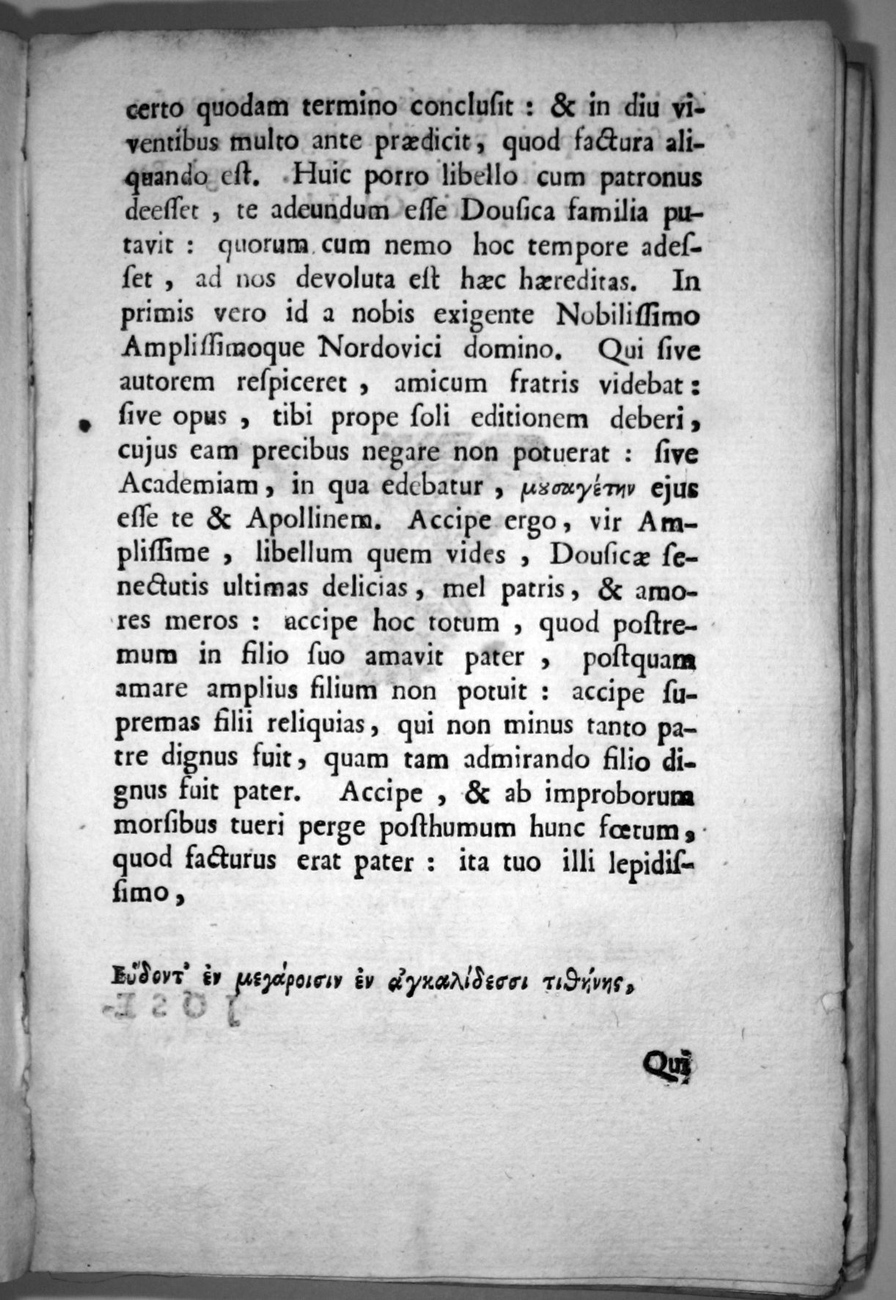 certo quodam termino concluſit : & in diu vi-
ventibus multo ante prædicit, quod factura ali-
quando eſt. Huic porro libello cum patronus
deeſſet , te adeundum eſſe Douſica familia pu-
tavit : quorum cum nemo hoc tempore adeſ-
ſet , ad nos devoluta eſt hæc hæreditas. In
primis vero id a nobis exigente Nobiliſſimo
Ampliſſimoque Nordovici domino. Qui ſive
autorem reſpiceret , amicum fratris videbat :
ſive opus , tibi prope ſoli editionem deberi ,
cujus eam precibus negare non potuerat : ſive
Academiam, in qua edebatur , μȣσαγέτην ejus
eſſe te & Apollinem. Accipe ergo, vir Am-
pliſſime , libellum quem vides , Douſicæ ſe-
nectutis ultimas delicias, mel patris, & amo-
res meros : accipe hoc totum , quod poſtre-
mum in filio ſuo amavit pater , poſtquam
amare amplius filium non potuit : accipe ſu-
premas filii reliquias, qui non minus tanto pa-
tre dignus fuit, quam tam admirando filio di-
gnus fuit pater. Accipe , & ab improborum
morſibus tueri perge poſthumum hunc fœtum,
quod facturus erat pater : ita tuo illi lepidiſ-
ſimo ,
Εὕδοντ' ἐν μεγάροισιν ἐν ἀγκαλίδεσσι τιθήνης,
Qui